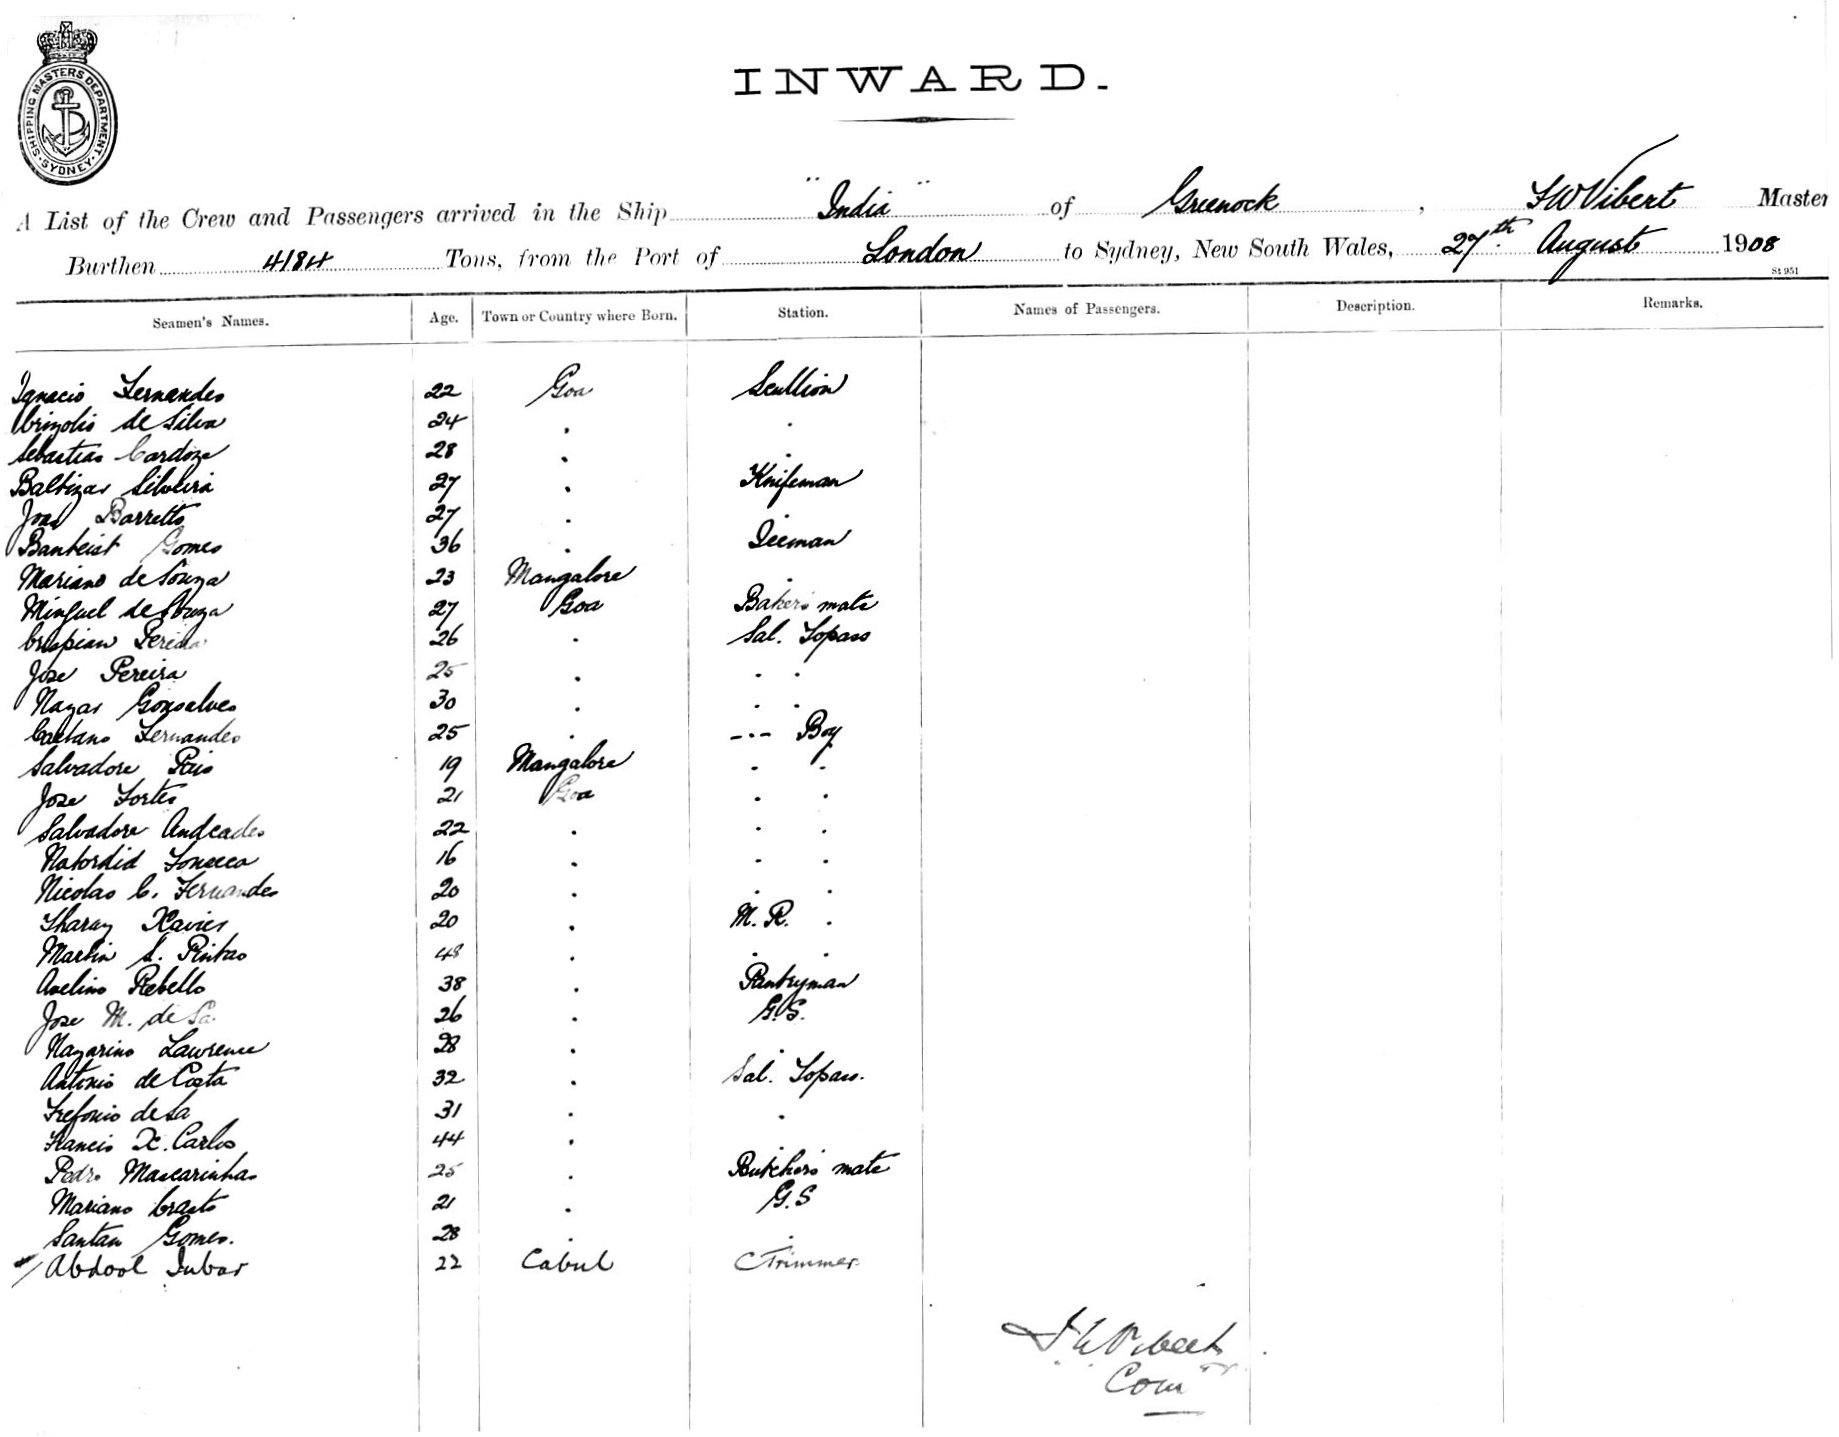 SHIPPING MASTERS DEPARTMENT · SYDNEY ·
INWARD.
A List of the Crew and Passengers arrived in the Ship "India" of Greenock, F W Vibert Master
Burthen 4184 Tons, from the Port of London to Sydney, New South Wales, 27th August 1908
St 951
Seamen's Names. Age. Town or Country where Born. Station. Names of Passengers. Description. Remarks.
Ignacio Fernandes 22 Goa Scullion
de Silva 24 . .
Sebastiao Cardoza 28 . .
Baltizar Silveira 27 . Knifeman
Joao Barretto 27 .
Bauteist Gomes 36 . Iceman
Mariano de Souza 23 Mangalore .
Minguel de Souza 27 Goa Baker's mate
Crispian Pereira 26 . Sal. Topass
Jose Pereira 25 . . .
Nazar Gonsalves 30 . . .
Caetano Fernandes 25 . --- Boy
Salvadore Pais 19 Mangalore . .
Jose Fortes 21 Goa . .
Salvadore Andrades 22 . . .
Fonseca 16 . . .
Nicolao C. Fernandes 20 . . .
Xavier 20 . M. R. .
Martin S. Pintao 48 . . .
Avelino Rebello 38 . Pantryman
Jose M. de Sa 26 . G.S.
Nazarino Lawrence 28 . .
Antonio de Costa 32 . Sal. Topass.
de Sa 31 . .
Francis X. Carlos 44 .
Pedro Mascarinhas 25 . Butcher's mate
Mariano Crasto 21 . G.S
Santan Gomes. 28 . .
Abdool Jubar 22 Cabul C Trimmer
F W Vibert
Com